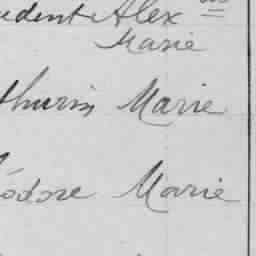 udent Alex
Marie
thurin Marie
éodore Marie